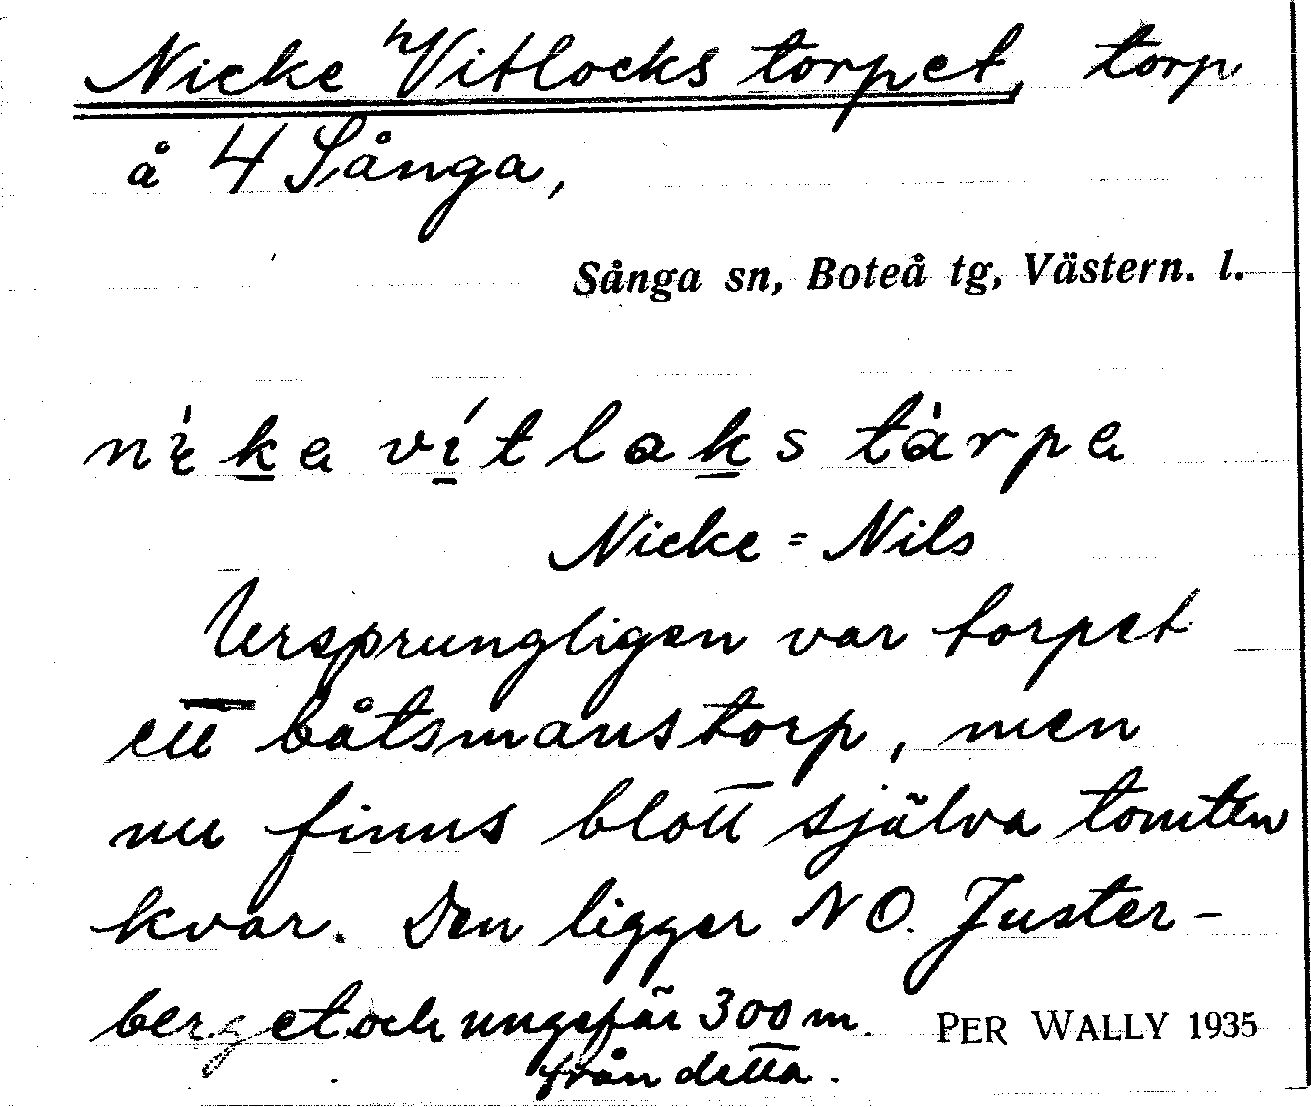 Nicke Vitlocks torpet, torp
å 4 Sånga,
Sånga sn, Boteå tg, Västern. l.
Nicke = Nils
Ursprungligen var torpet
ett båtsmanstorp, men
nu finns blott själva tomten
kvar. Den ligger NO. Juster-
berget och ungefär 300 m.
PER WALLY 1935
från detta.